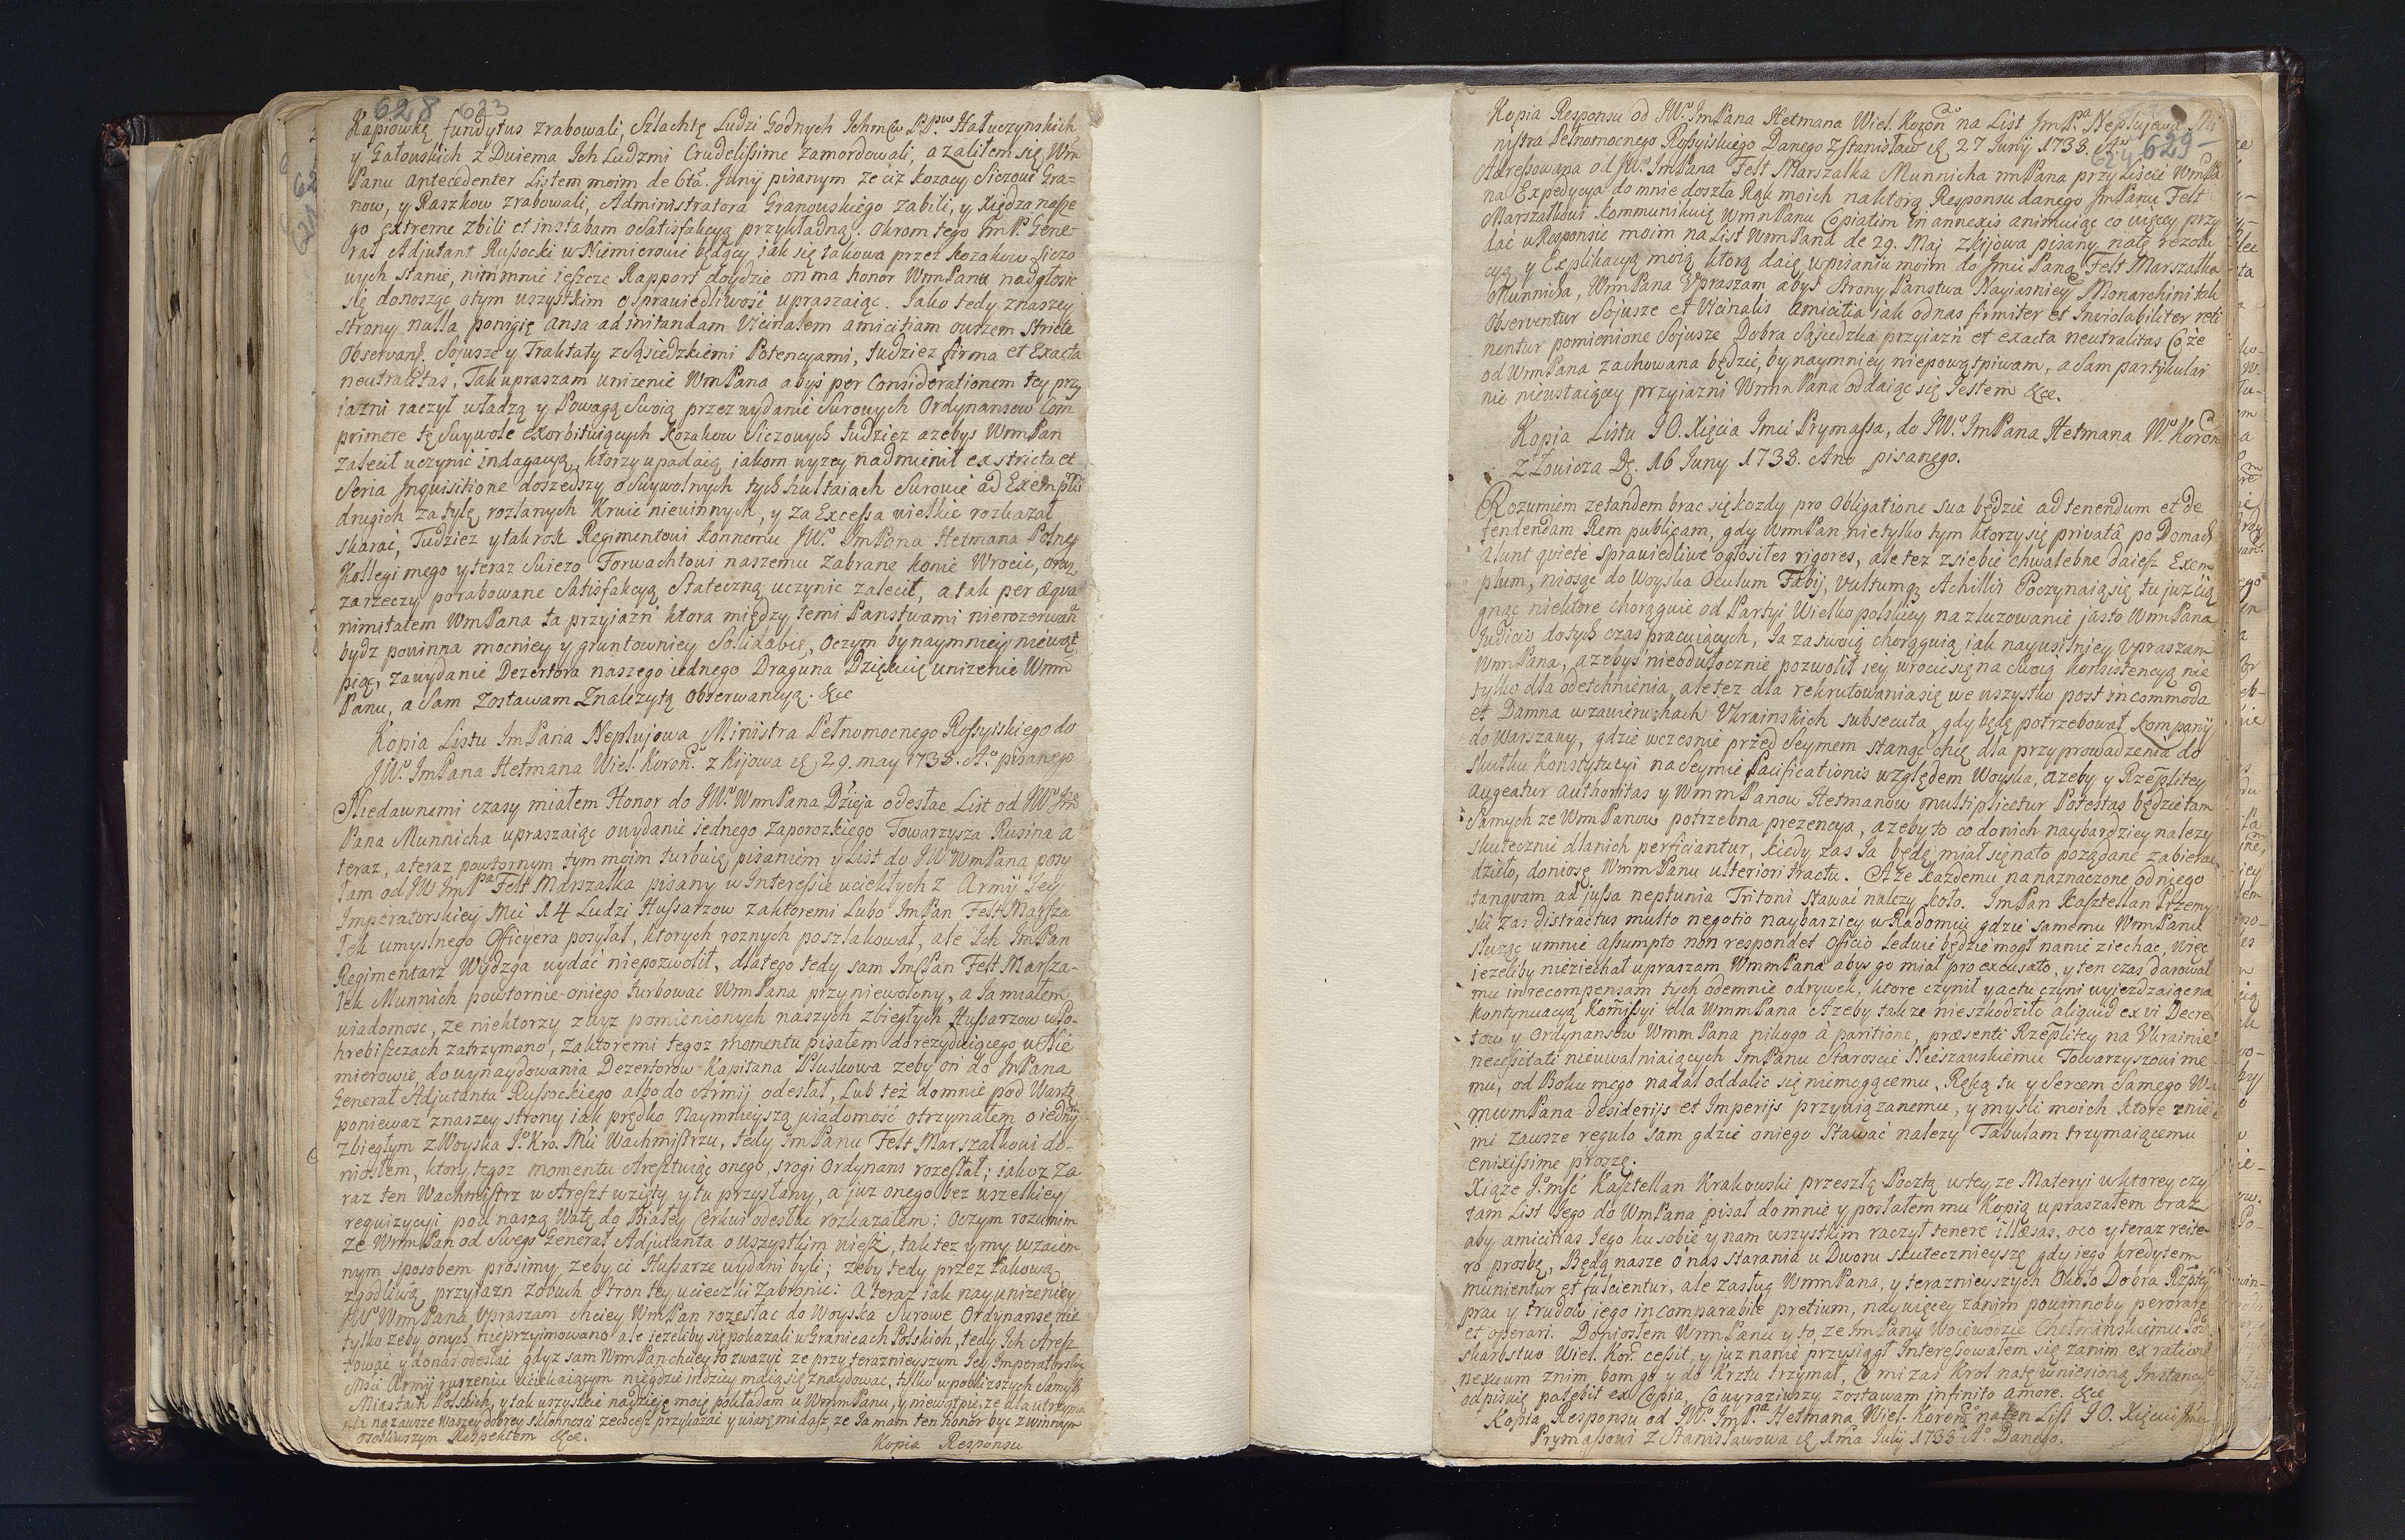 628 623
Kapiowkę fundytus zrabowali, Szlachtę Ludzi Godnych Ichmciw PPw Hałuczynskich
y Gałouskich z Dwiema Ich Ludzmi Crudelissime zamordowali, a zalitem się Wm
Panu antecedenter Listem moim de 6ta Junij pisanym ze ciz kozacy Siczowi Gra=
now, y Raszkow zrabowali, Administratora Granowskiego zabili, y Xiędza nasze
go extreme zbili et instabam o Satisfakcyą przykładną. okrom tego ImP. Gene-
rał Adjutant Russocki w Niemierowie będący jak się takowa przez kozakow Siczo
wych stanie, nim mnie ieszcze Rapport doydzie on ma honor WmPanu nadgłosic
się donosząc o tym wszystkim o Sprawiedliwość upraszaiąc. Iako tedy z naszey
strony nulla ponigię ansa ad initandam Vicinalem amicitiam owszem Stricte
Observant. Sojusze y Traktaty z Sąsiedzkiemi Potencyami, tudziez firma et Exacta
neutralitas, Tak upraszam unizenie WmPana abyś per Considerationem tey przy
iazni raczył władzą y Powagą Swoią przez wydanie Surowych Ordynansow Com
primere tę Swywole exorbituiących Kozakow Siczowych tudziez azebys WmPan
zalecił uczynić indagacyą, ktorzy upadaią iakom wyzey nadmienił ex stricta et
Seria Inquisitione doszedszy o Swywolnych tych hultaiach Surowie ad Exemplu
drugich za tylę rozlanych Krwie niewinnych, y za Excessa wielkie rozkazał
skarać, Tudziez y tak rok Regimentowi konnemu JW. ImPana Hetmana Polneg
Kollegi mego y teraz Swiezo Forwachtowi naszemu Zabrane konie Wrocic, oraz
za rzeczy porabowane Satisfakcyą Stateczną uczynic zalecił, a tak per aequa
nimitatem WmPana ta przyiazń ktora między temi Panstwami nierozerwań
bydz powinna mocniey y gruntowniey Solidabię, o czym bynaymniey niewąt
pię, za wydanie Dezertora naszego iednego Draguna Dziękuię unizenie Wmm
Panu, a Sam Zostawam Znalezytą obserwancyą. &ce
Kopia Listu ImPana Neplujowa Ministra Pełnomocnego Rossyiskiego do
JW. ImPana Hetmana Wiel. Koron. z Kijowa d. 29. may 1738. Ao. pisanego
Niedawnemi czasy miałem Honor do JW. WmPana Dzieja odesłac List od JW. Im
Pana Munnicha upraszaiąc o wydanie iednego Zaporozkiego Towarzysza Rusina a
teraz, a teraz powtornym tym moim turbuię pisaniem y List do JW WmPana posy
łam od JW ImPa Felt Marszałka pisany w Interessie uciekłych z Armij Iey
Imperatorskiey Mci 14 Ludzi Hussarzow za ktoremi Lubo ImPan Felt Marsza
łek umyslnego Officyera posyłał, ktorych roznych poszlakował, ale Ich ImPan
Regimentarz Wydzga wydać niepozwolił, dlatego tedy sam ImPan Felt Marsza-
łek Munnich powtornie oniego turbowac WmPana przyniewolony, a Ia miałem
wiadomosc, ze niektorzy z wyz pomienionych naszych zbiegłych Hussarzow w Po-
hrebiszczach zatrzymano, za ktoremi tegoz momentu pisałem do rezyduiącego w Nie
mierowie do wynaydowania Dezertorow Kapitana Pluskowa zeby on do ImPana
Generał Adjutanta Russockiego albo do Armij odesłał, Lub też domnie pod Wartę
poniewaz znaszey strony iak prędko Naymnieyszą wiadomość otrzymałem o iednym
zbiegłym z Woyska Jo. Kro. Mci Wachmistrzu, tedy ImPanu Felt Marszałkowi do-
niosłem, ktory tegoz momentu Aresztuiąc onego, srogi Ordynans rozesłał; iakoz za
raz ten Wachmistrz w Areszt wzięty y tu przysłany, a juz onego bez wszelkiey
requizycyi pod naszą Wartę do Białey Cerkwi odesłac rozkazałem; o czym rozumim
ze WmmPan od Swego Generał Adjutanta o wszystkim wiesz, tak tez y my wzaiem
nym sposobem prosimy, zeby ci Hussarze wydani byli; zeby tedy przez takową
zgodliwą przyiazn z obuch Stron tey ucieczki zabronic: A teraz iak nayunizeniey
JW WmPana Vpraszam chciey WmPan rozesłac do Woyska Surowe Ordynanse nie
tylko zeby onych nieprzyimowano ale jezeliby się pokazali w Granicach Polskich, tedy Ich Aresz
towac y do nas odesłać gdyz sam WmPan chciey to zwazyć ze przy teraznieyszym Iey Imperatorskiey
Mci Armij ruszeniu uciekaiącym niegdzie indziey maią się znaydowac, tylko w poblizszych Samych
Miastach Polskich, y tak wszystkie nadzieię moię pokładam u WmmPana, y niewątpię, ze dla utrzyma
nia nazawsze Waszey dobrey skłonności zechcesz przykazać y wiarę mi dasz, ze Ia mam ten honor być z winnym
osobliwszym Respektem &ce.
Kopia Responsu
Kopia Responsu od JW. ImPana Hetmana Wiel. Koron. na List ImPa Neplujewa Mi
nistra Pełnomocnego Rossyiskiego Danego z Stanisław. d. 27 Junij 1738. Ao.
624 629
Adressowana od JW. ImPana Felt Marszałka Munnicha mnPana przy Liscie WmPa
na Expedycya do mnie doszła Rąk moich na ktorą Responsu danego ImPanu Felt
Marszałkowi kommunikuię WmnPanu Copiatim in annexis animuiąc co więcey przy
dać w Responsie moim na List WmmPana de 29. Maj z Kijowa pisany, na tę rezolu
cyą y Explikacyą moią ktorą daię w pisaniu moim do Jmci Pana Felt Marszałka
Munnicha, WmPana Vpraszam abyś strony Panstwa Nayiasniey Monarchini tak
Observentur Sojusze et Vicinalis Amicitia iak od nas firmiter et Inviolabiliter reti
nentur pomienione Sojusze Dobra Sąsiedzka przyiaźń et exacta neutralitas Co ze
od WmPana zachowana będzie, bynaymniey niepowątpiwam, a Sam partykular
nie nieustaiącey przyiazni WmnPana oddaiąc się Iestem &ce.
Kopia Listu JO. Xięcia Imci Prymassa, do JW. ImPana Hetmana W. Koron
z Łowicza D. 16 Juny 1738. Ano pisanego.
Rozumiem ze tandem brac się kozdy pro Obligatione sua będzie ad tenendum et de
fendendam Rem publicam, gdy WmPan nie tylko tym ktorzy się privatâ po Domach
alunt quieté sprawiedliwe ogłosiłes rigores, ale tez z siebie chwalebne daiesz Exem
plum, niosąc do Woyska Oculum Fabij, vultumq Achillis Poczynaią się tu juz cią
gnąc niektore chorągwie od Partyi Wielkopolskiey na zluzowanie jasto WmPana
Judicio do tych czas pracuiących, Ia za swoią chorągwią iak nayusilniey Vpraszam
WmPana, azebyś nieodwłocznie pozwolił iey wrocic się na Swoią konsistencyą nie
tylko dla odetchnienia, ale tez dla rekrutowania się we wszystko post incommoda
et Damna w zawieruchach Vkrainskich subsecuta, gdy będę potrzebował kompanij
do Warszawy, gdzie wczesnie przed Seymem stanąc chcę dla przyprowadzenia do
skutku Konstytucyi na Seymie Pacificationis względem Woyska, azeby y Rzeplitey
augeatur authoritas y WmmPanow Hetmanow multiplicetur Potestas będzie tam
Samych ze WmPanow potrzebna prezencya, azeby to co do nich naybardziey nalezy
skutecznie dla nich perficiantur, kiedy zas Ia będę miał się na to poządane zabierac
dzieło, doniosę WmmPanu ulteriori tractu. A ze kazdemu na naznaczone od niego
tanquam ad jussa neptunia Tritoni stawać nalezy koło. ImPan Kasztellan Przemy
ski zas distractus multo negotio naybarziey w Radomiu gdzie samemu WmPanu
sluząc u mnie assumpto non respondet Officio ledwie będzie mogł na nie ziechac, więc
iezeliby nieziechał upraszam WmmPana abys go miał pro excusato, y ten czas darował
mu in recompensam tych odemnie odrywek, ktore czynił y actu czyni wyiezdzaiąc na
kontynuacyą Kommissyi dla WmmPana Azeby tak ze nieszkodziło aliquid ex vi Decre
tow y Ordynansow WmmPana nikogo à paritione, praesenti Rzeplitey na Vkrainie
necessitati nieuwalniaiących ImPanu Staroscie Nieszawskiemu Towarzyszowi me
mu, od Boku mego nadal oddalic się niemogącemu, Ręką tu y Sercem Samego W
mmPana desiderijs et Imperijs przywiązanemu, y mysli moich ktore
mi zawsze regulo sam gdzie oniego stawać nalezy Tabulam trzymaiącemu
enixissime proszę.
Xiąze Jomsć Kasztellan Krakowski przeszłą Pocztą w tey ze Materyi w ktorey czy
tam List Iego do WmPana pisał do mnie y posłałem mu Kopią upraszałem oraz
aby amicitias Iego ku sobie y nam wszystkim raczył tenere illaesas, o co y teraz reite
ro prosbę, Będą nasze o nas starania u Dworu skutecznieyszę gdy iego kredytem
munientur et fulcientur, ale zasług WmmPana, y teraznieyszych około Dobra Rzpltey
prac y trudow iego incomparabile pretium, naywięcey za nim powinnoby perorare
et operari. Doniosłem WmmPanu y to, ze ImPanu Woiewodzie Chełminskiemu Pod
skarbstwo Wiel. Kor. cessit, y juz na nie przysiągł Interessowałem się za nim ex ratione
nexuum znim, bom go y do Krztu trzymał, Co mi zas Krol na tę wniesioną Instancyą
odpisuię patebit ex Copia, Co wyraziwszy zostawam infinito amore. &ce
Kopia Responsu od JW. ImPa Hetmana Wiel. Koronn. na ten List JO. Xięciu Im
Prymassowi z Stanisławowa d. 1ma Julij 1738 Ao. Danego.